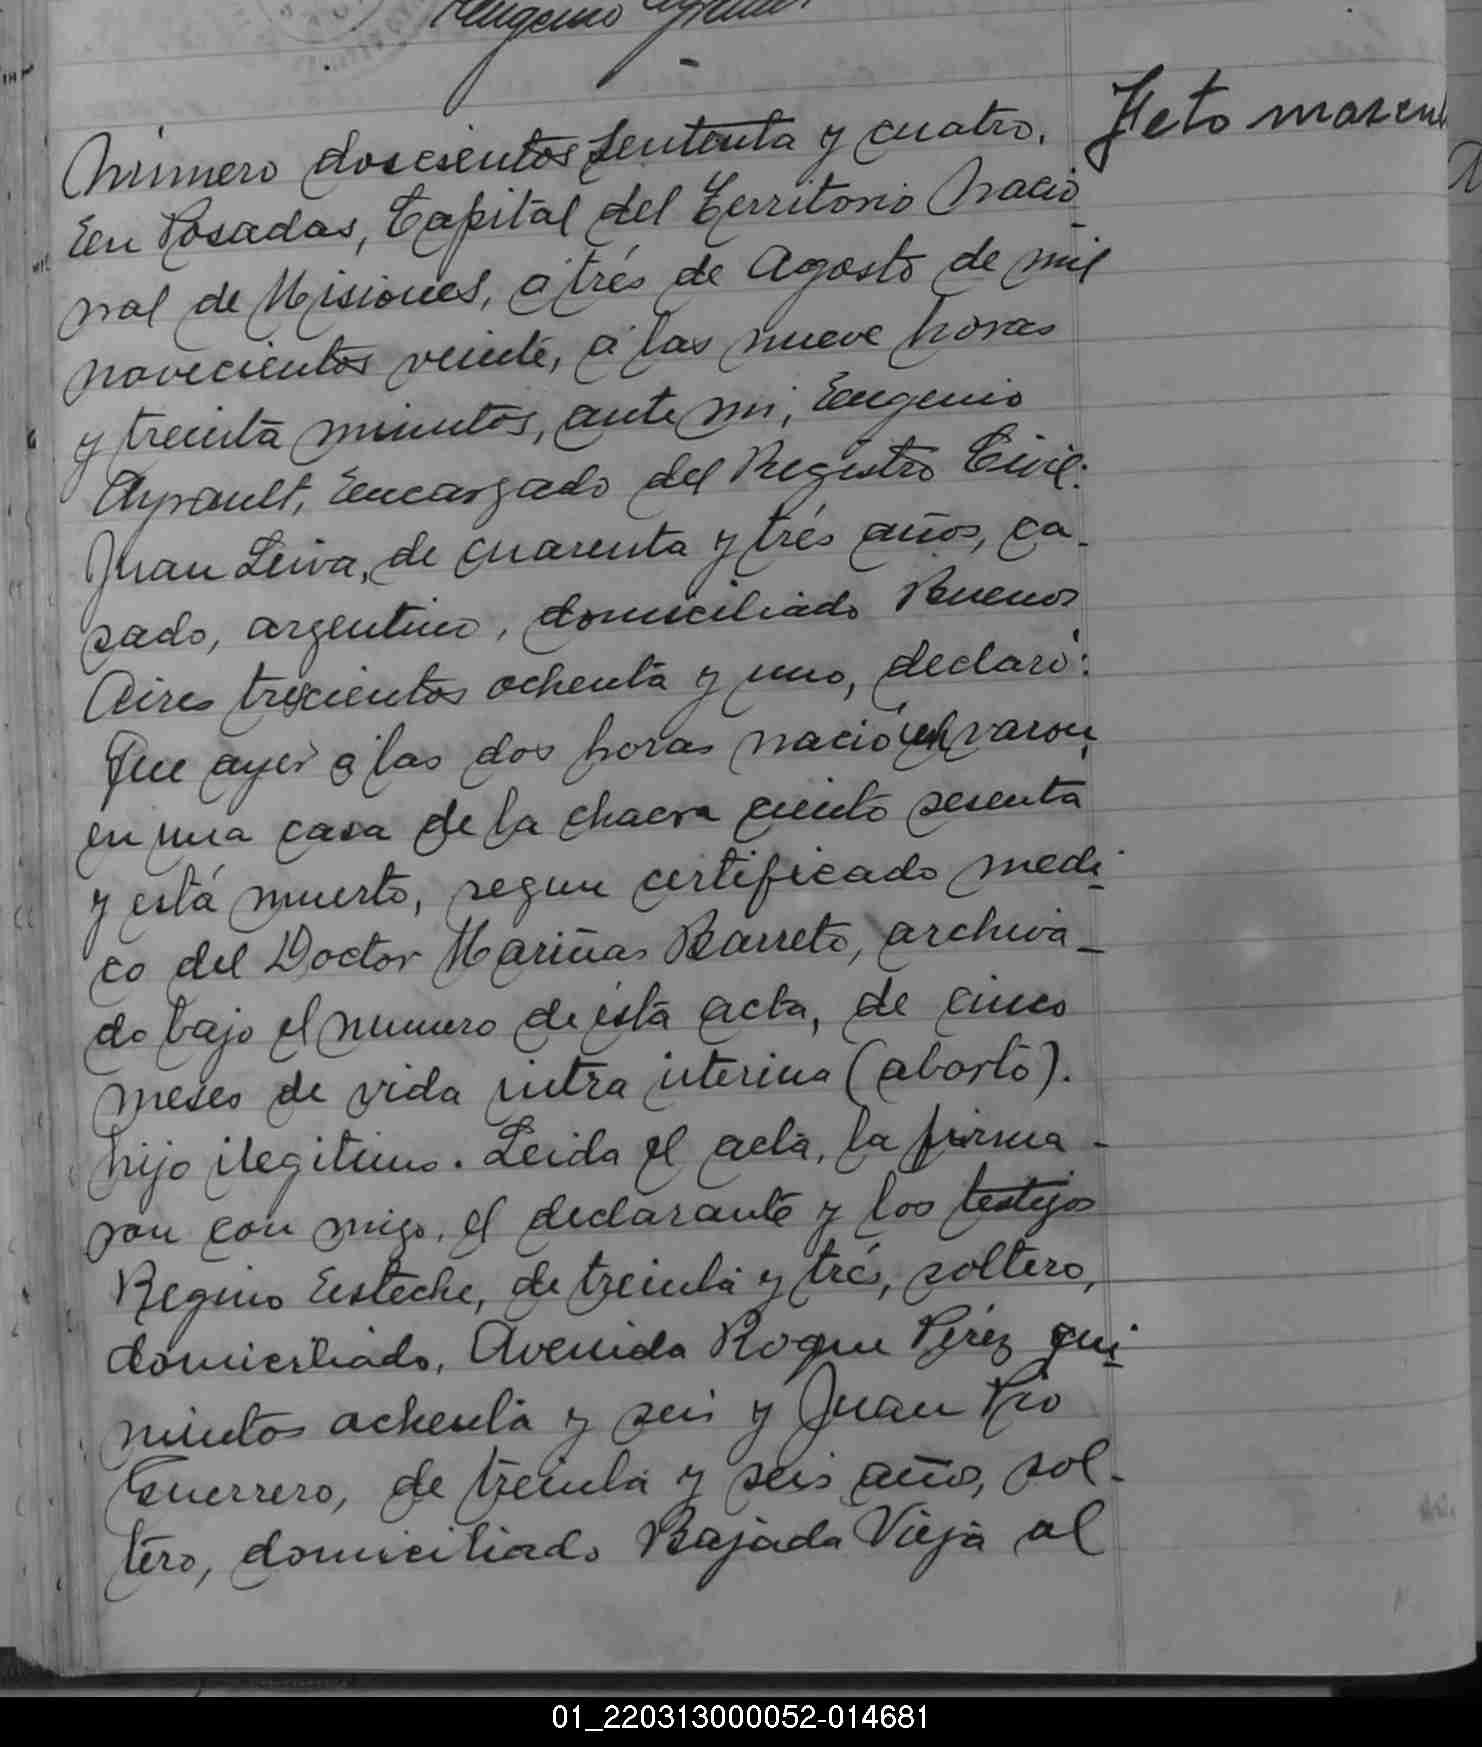 Eugenio Ayrault
Feto mascul
Número doscientos setenta y cuatro.
En Posadas, Capital del Territorio Nacio
nal de Misiones, á trés de Agosto de mil
novecientos veinte, á las nueve horas
y treinta minutos, ante mi, Eugenio
Ayrault, Encargado del Registro Civil:
Juan Leiva, de cuarenta y trés años, ca-
sado, argentino, domiciliado Buenos
Aires trescientos ochenta y uno, declaró:
Que ayer á las dos horas nació un varon,
en una casa de la chacra ciento sesenta
y está muerto, segun certificado medi-
co del Doctor Mariñas Barreto, archiva-
do bajo el numero de ésta acta, de cinco
meses de vida intra uterina (aborto).
hijo ilegitimo. Leida el acta, la firma-
ron con migo, el declarante y los testigos
Regino Esteche, de treinta y trés, soltero,
domiciliado, Avenida Roque Pérez qui-
nientos ochenta y seis y Juan Pio
Guerrero, de treinta y seis años, sol-
tero, domiciliado Bajada Vieja al
01_220313000052-014681